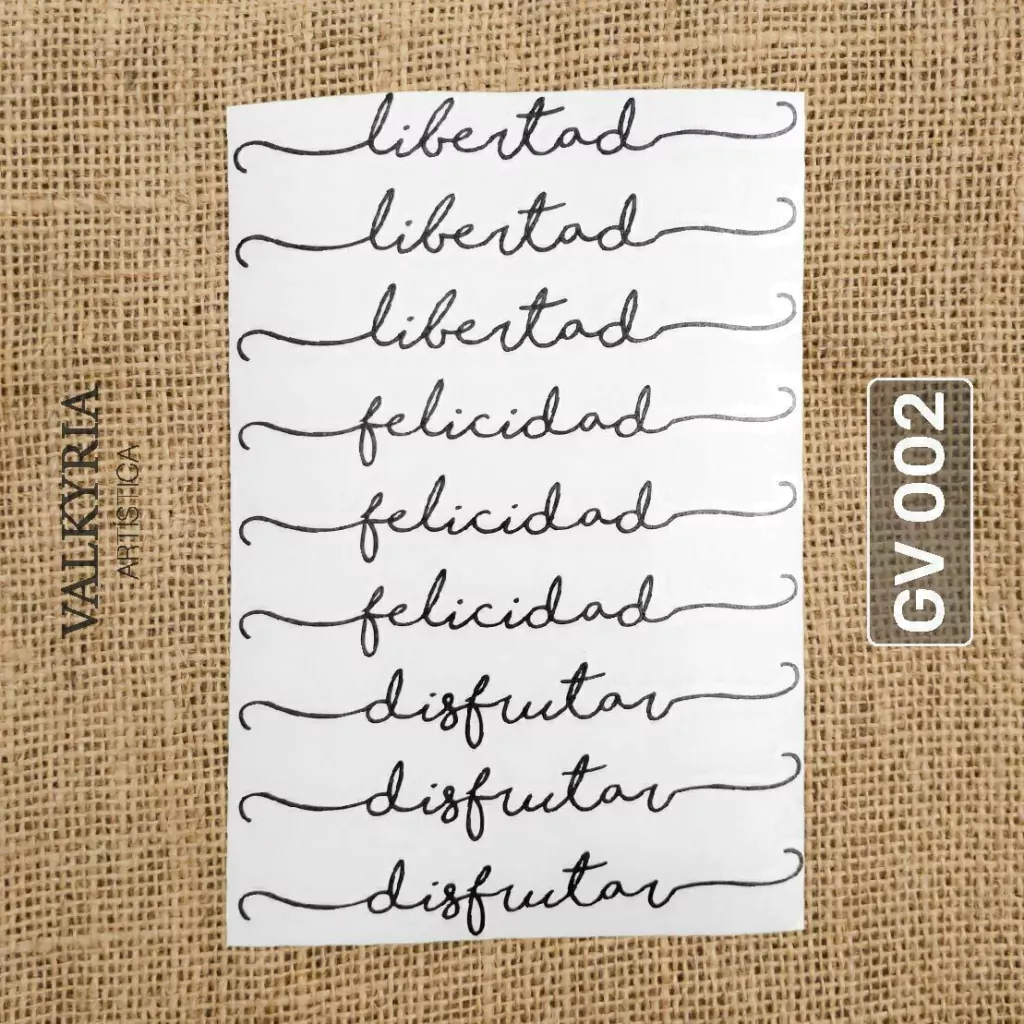 libertad
libertad
libertad
felicidad
felicidad
felicidad
disfrutar
disfrutar
disfrutar
VALKYRIA
ARTÍSTICA
GV 002